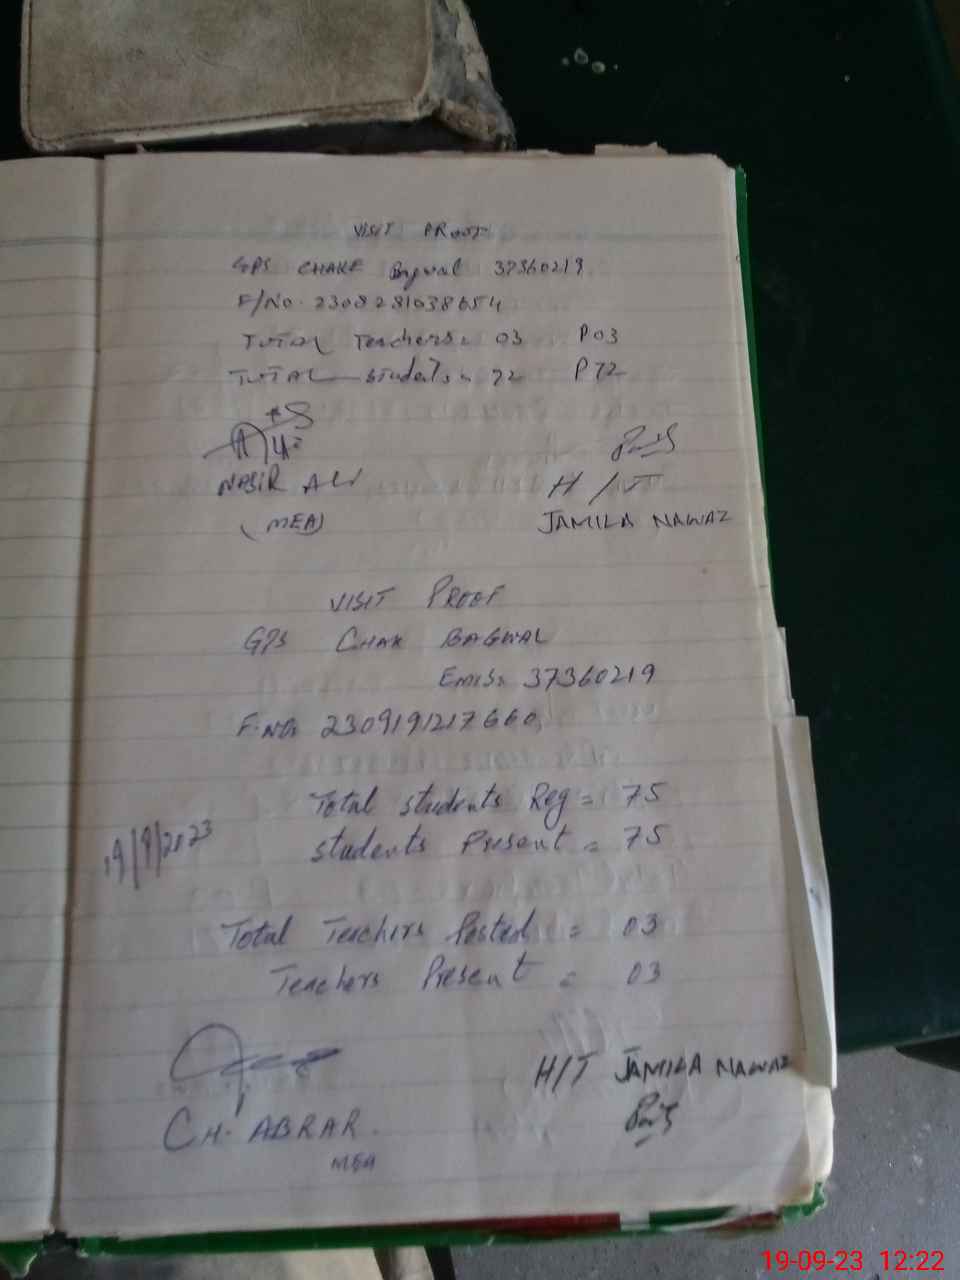 VISIT PROOF
GPS CHAKE Bagwal 37360219
F/No. 2308281038654
TOTAL Teachers = 03 P03
TOTAL Students = 72 P72
NASIR ALI
(MEA)
H/T
JAMILA NAWAZ
VISIT PROOF
GPS CHAK BAGWAL
EMIS: 37360219
F.No: 2309191217660
Total students Reg = 75
students Present = 75
19/9/2023
Total Teachers Posted = 03
Teachers Present = 03
H/T JAMILA NAWAZ
CH. ABRAR
MEA
19-09-23 12:22